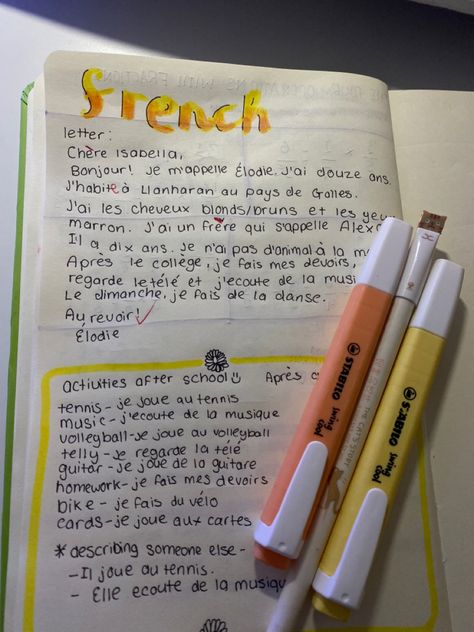 french
letter:
Chère Isabella,
Bonjour! Je m'appelle Élodie. J'ai douze ans.
J'habite à Llanharan au pays de Galles.
J'ai les cheveux blonds/bruns et les yeux
marron. J'ai un frère qui s'appelle
Il a dix ans. Je n'ai pas d'animal à la
Après le collège, je fais mes devoirs,
regarde le télé et j'ecoute de la
Le dimanche, je fais de la danse.
Au revoir!
Élodie
activities after school Après
tennis - je joue au tennis
music - j'ecoute de la musique
volleyball - je joue au volleyball
telly - je regarde la télé
guitar - je joue de la guitare
homework - je fais mes devoirs
bike - je fais du vélo
cards - je joue aux cartes
* describing someone else -
- Il joue au tennis.
- Elle ecoute de la musique
STABILO swing cool
STABILO swing cool